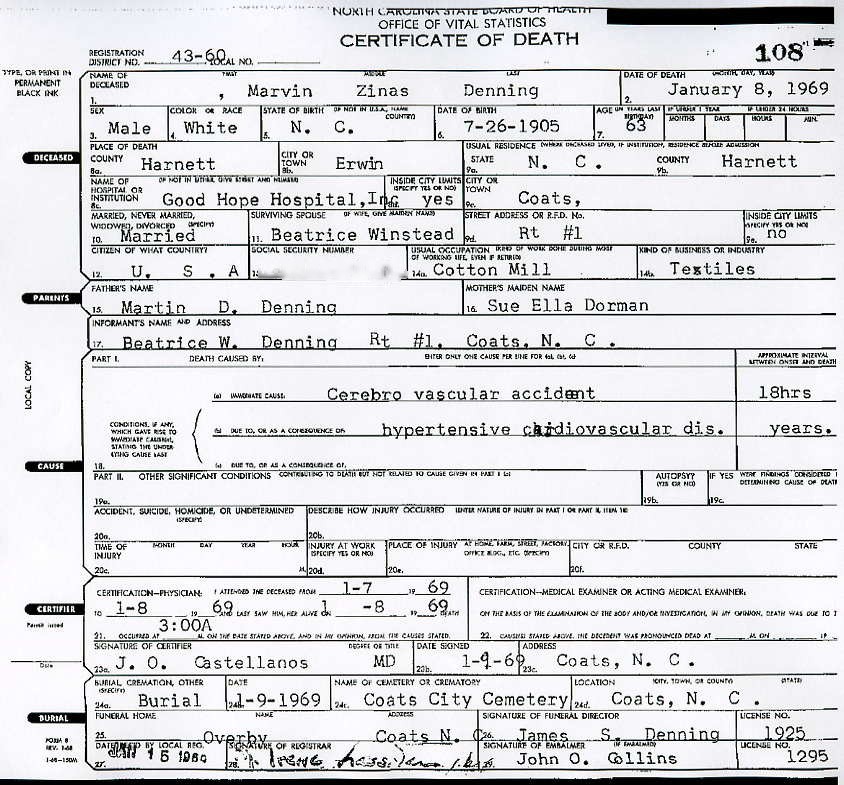 NORTH CAROLINA STATE BOARD OF HEALTH
OFFICE OF VITAL STATISTICS
CERTIFICATE OF DEATH
REGISTRATION DISTRICT NO. 43-60 LOCAL NO. 108
TYPE, OR PRINT IN PERMANENT BLACK INK
NAME OF DECEASED FIRST MIDDLE LAST DATE OF DEATH (MONTH, DAY, YEAR)
1. , Marvin Zinas Denning 2. January 8, 1969
SEX COLOR OR RACE STATE OF BIRTH (IF NOT IN U.S.A., NAME COUNTRY) DATE OF BIRTH AGE (IN YEARS LAST BIRTHDAY) IF UNDER 1 YEAR IF UNDER 24 HOURS
MONTHS DAYS HOURS MIN.
3. Male 4. White 5. N. C. 6. 7-26-1905 7. 63
DECEASED
PLACE OF DEATH USUAL RESIDENCE (WHERE DECEASED LIVED, IF INSTITUTION, RESIDENCE BEFORE ADMISSION
COUNTY Harnett CITY OR TOWN Erwin STATE N. C. COUNTY Harnett
8a. 8b. 9a. 9b.
NAME OF HOSPITAL OR INSTITUTION (IF NOT IN EITHER, GIVE STREET AND NUMBER) INSIDE CITY LIMITS (SPECIFY YES OR NO) CITY OR TOWN
8c. Good Hope Hospital,Inc 8d. yes 9c. Coats,
MARRIED, NEVER MARRIED, WIDOWED, DIVORCED (SPECIFY) SURVIVING SPOUSE (IF WIFE, GIVE MAIDEN NAME) STREET ADDRESS OR R.F.D. No. INSIDE CITY LIMITS (SPECIFY YES OR NO)
10. Married 11. Beatrice Winstead 9d. Rt #1 9e. no
CITIZEN OF WHAT COUNTRY? SOCIAL SECURITY NUMBER USUAL OCCUPATION (KIND OF WORK DONE DURING MOST OF WORKING LIFE, EVEN IF RETIRED) KIND OF BUSINESS OR INDUSTRY
12. U. S. A 14a. Cotton Mill 14b. Textiles
PARENTS
FATHER'S NAME MOTHER'S MAIDEN NAME
15. Martin D. Denning 16. Sue Ella Dorman
INFORMANT'S NAME AND ADDRESS
17. Beatrice W. Denning Rt #1. Coats, N. C.
LOCAL COPY
PART I. DEATH CAUSED BY: ENTER ONLY ONE CAUSE PER LINE FOR (a), (b), (c) APPROXIMATE INTERVAL BETWEEN ONSET AND DEATH
(a) IMMEDIATE CAUSE: Cerebro vascular accident 18hrs
CONDITIONS, IF ANY, WHICH GAVE RISE TO IMMEDIATE CAUSE(a), STATING THE UNDERLYING CAUSE LAST
(b) DUE TO, OR AS A CONSEQUENCE OF: hypertensive cardiovascular dis. years.
CAUSE
18. (c) DUE TO, OR AS A CONSEQUENCE OF,
PART II. OTHER SIGNIFICANT CONDITIONS CONTRIBUTING TO DEATH BUT NOT RELATED TO CAUSE GIVEN IN PART I (a) AUTOPSY? (YES OR NO) IF YES WERE FINDINGS CONSIDERED I DETERMINING CAUSE OF DEATH
19a. 19b. 19c.
ACCIDENT, SUICIDE, HOMICIDE, OR UNDETERMINED (SPECIFY) DESCRIBE HOW INJURY OCCURRED (ENTER NATURE OF INJURY IN PART I OR PART II, ITEM 18)
20a. 20b.
TIME OF INJURY MONTH DAY YEAR HOUR INJURY AT WORK (SPECIFY YES OR NO) PLACE OF INJURY AT HOME, FARM, STREET, FACTORY, OFFICE BLDG., ETC. (SPECIFY) CITY OR R.F.D. COUNTY STATE
20c. M. 20d. 20e. 20f.
CERTIFICATION—PHYSICIAN: I ATTENDED THE DECEASED FROM 1-7 19 69 CERTIFICATION—MEDICAL EXAMINER OR ACTING MEDICAL EXAMINER:
CERTIFIER
TO 1-8 19 69 AND LAST SAW HIM, HER ALIVE ON 1 -8 69 DEATH ON THE BASIS OF THE EXAMINATION OF THE BODY AND/OR INVESTIGATION, IN MY OPINION, DEATH WAS DUE TO T
Permit issued
3:00A
21. OCCURRED AT M. ON THE DATE STATED ABOVE, AND IN MY OPINION, FROM THE CAUSES STATED. 22. CAUSE(S) STATED ABOVE. THE DECEDENT WAS PRONOUNCED DEAD AT M. ON 19
SIGNATURE OF CERTIFIER DEGREE OR TITLE DATE SIGNED ADDRESS
23a. J. O. Castellanos MD 23b. 1-9-69 23c. Coats, N. C.
Date
BURIAL, CREMATION, OTHER (SPECIFY) DATE NAME OF CEMETERY OR CREMATORY LOCATION (CITY, TOWN, OR COUNTY) (STATE)
24a. Burial 24b. 1-9-1969 24c. Coats City Cemetery 24d. Coats, N. C.
BURIAL
FUNERAL HOME NAME ADDRESS SIGNATURE OF FUNERAL DIRECTOR LICENSE NO.
25. Overby Coats N. C 26. James S. Denning 1925
FORM 8
REV. 1-68
1-68—150M
DATE REC'D BY LOCAL REG. SIGNATURE OF REGISTRAR SIGNATURE OF EMBALMER (IF EMBALMED) LICENSE NO.
27. JAN 15 1969 28. John O. Collins 1295